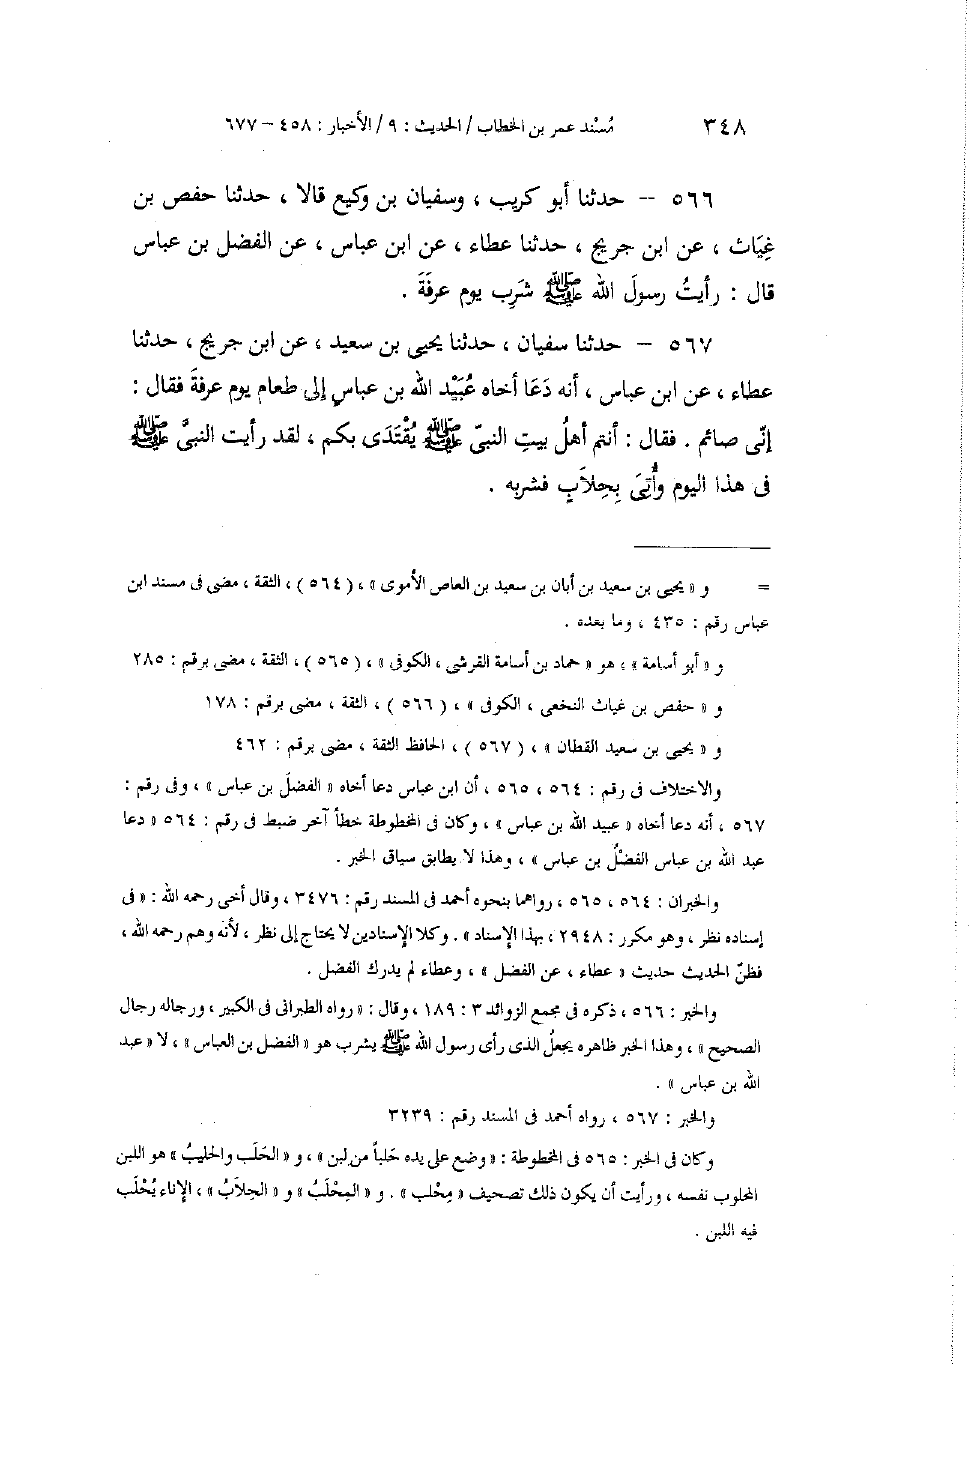 ٣٤٨ مُسْند عمر بن الخطاب / الحديث : ٩ / الأخبار : ٤٥٨ – ٦٧٧
٥٦٦ – حدثنا أبو كريب ، وسفيان بن وكيع قالا ، حدثنا حفص بن
غِيَاث ، عن ابن جريج ، حدثنا عطاء ، عن ابن عباس ، عن الفضل بن عباس
قال : رأيتُ رسولَ الله ﷺ شَرِب يوم عرفَةَ .
٥٦٧ – حدثنا سفيان ، حدثنا يحيى بن سعيد ، عن ابن جريج ، حدثنا
عطاء ، عن ابن عباس ، أنه دَعَا أخاه عُبَيْد الله بن عباسٍ إلى طعام يوم عرفةَ فقال :
إنّى صائم . فقال : أنتم أهلُ بيتِ النبىّ ﷺ يُقْتَدَى بكم ، لقد رأيت النبىَّ ﷺ
فى هذا اليوم وأُتِىَ بِحِلاَبٍ فشربه .
= و « يحيى بن سعيد بن أبان بن سعيد بن العاص الأموى » ، ( ٥٦٤ ) ، الثقة ، مضى فى مسند ابن
عباس رقم : ٤٣٥ ، وما بعده .
و « أبو أسامة » ، هو « حماد بن أسامة القرشى ، الكوفى » ، ( ٥٦٥ ) ، الثقة ، مضى برقم : ٢٨٥
و « حفص بن غياث النخعى ، الكوفى » ، ( ٥٦٦ ) ، الثقة ، مضى برقم : ١٧٨
و « يحيى بن سعيد القطان » ، ( ٥٦٧ ) ، الحافظ الثقة ، مضى برقم : ٤٦٢
والاختلاف فى رقم : ٥٦٤ ، ٥٦٥ ، أن ابن عباس دعا أخاه « الفضلَ بن عباس » ، وفى رقم :
٥٦٧ ، أنه دعا أخاه « عبيد الله بن عباس » ، وكان فى المخطوطة خطأ آخر ضبط فى رقم : ٥٦٤ « دعا
عبد الله بن عباس الفضْلُ بن عباس » ، وهذا لا يطابق سياق الخبر .
والخبران : ٥٦٤ ، ٥٦٥ ، رواهما بنحوه أحمد فى المسند رقم : ٣٤٧٦ ، وقال أخى رحمه الله : « فى
إسناده نظر ، وهو مكرر : ٢٩٤٨ ، بهذا الإسناد » . وكلا الإسنادين لا يحتاج إلى نظر ، لأنه وهم رحمه الله ،
فظنّ الحديث حديث « عطاء ، عن الفضل » ، وعطاء لم يدرك الفضل .
والخبر : ٥٦٦ ، ذكره فى مجمع الزوائد ٣ : ١٨٩ ، وقال : « رواه الطبرانى فى الكبير ، ورجاله رجال
الصحيح » ، وهذا الخبر ظاهره يجعلُ الذى رأى رسول الله ﷺ يشرب هو « الفضل بن العباس » ، لا « عبد
الله بن عباس » .
والخبر : ٥٦٧ ، رواه أحمد فى المسند رقم : ٣٢٣٩
وكان فى الخبر : ٥٦٥ فى المخطوطة : « وضع على يده حَلَباً من لبن » ، و « الحَلَب والحليبُ » هو اللبن
المحلوب نفسه ، ورأيت أن يكون ذلك تصحيف « مِحْلب » . و « المِحْلَبُ » و « الحِلاَبُ » ، الإناء يُحْلَب
فيه اللبن .